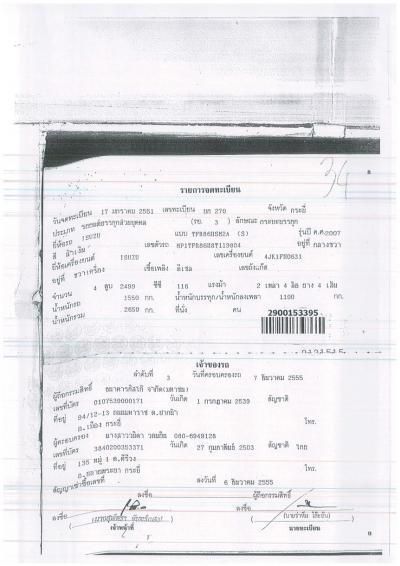 34
รายการจดทะเบียน
วันจดทะเบียน 17 มกราคม 2551 เลขทะเบียน 270 จังหวัด กระบี่
ประเภท รถยนต์บรรทุกส่วนบุคคล (รย. 3 ) ลักษณะ กระบะบรรทุก
ยี่ห้อรถ ISUZU แบบ (S) รุ่นปี ค.ศ.2007
สี เลขตัวรถ อยู่ที่ กลางขวา
ยี่ห้อเครื่องยนต์ ISUZU เลขเครื่องยนต์
อยู่ที่ ขวาเครื่อง เชื้อเพลิง ดีเซล เลขถังแก๊ส
จำนวน 4 สูบ 2499 ซีซี 116 แรงม้า 2 เพลา 4 ล้อ ยาง 4 เส้น
น้ำหนักรถ 1550 กก. น้ำหนักบรรทุก/น้ำหนักลงเพลา 1100 กก.
น้ำหนักรวม 2650 กก. ที่นั่ง คน
2900153395
เจ้าของรถ
ลำดับที่ 3 วันที่ครอบครองรถ 7 ธันวาคม 2555
ผู้ถือกรรมสิทธิ์ ธนาคารทิสโก้ จำกัด(มหาชน)
เลขที่บัตร 0107539000171 วันเกิด 1 กรกฎาคม 2539 สัญชาติ
ที่อยู่ 94/12-13 ถนนมหาราช ต.ปากน้ำ
อ.เมือง กระบี่ โทร.
ผู้ครอบครอง 080-6949128
เลขที่บัตร 3840200353371 วันเกิด 27 กุมภาพันธ์ 2503 สัญชาติ ไทย
ที่อยู่ 135 หมู่ 1 ต.คีรีวง
อ.ปลายพระยา กระบี่ โทร.
สัญญาเช่าซื้อเลขที่ ลงวันที่ 6 ธันวาคม 2555
ลงชื่อ ผู้ถือกรรมสิทธิ์
ลงชื่อ ลงชื่อ
เจ้าหน้าที่ นายทะเบียน